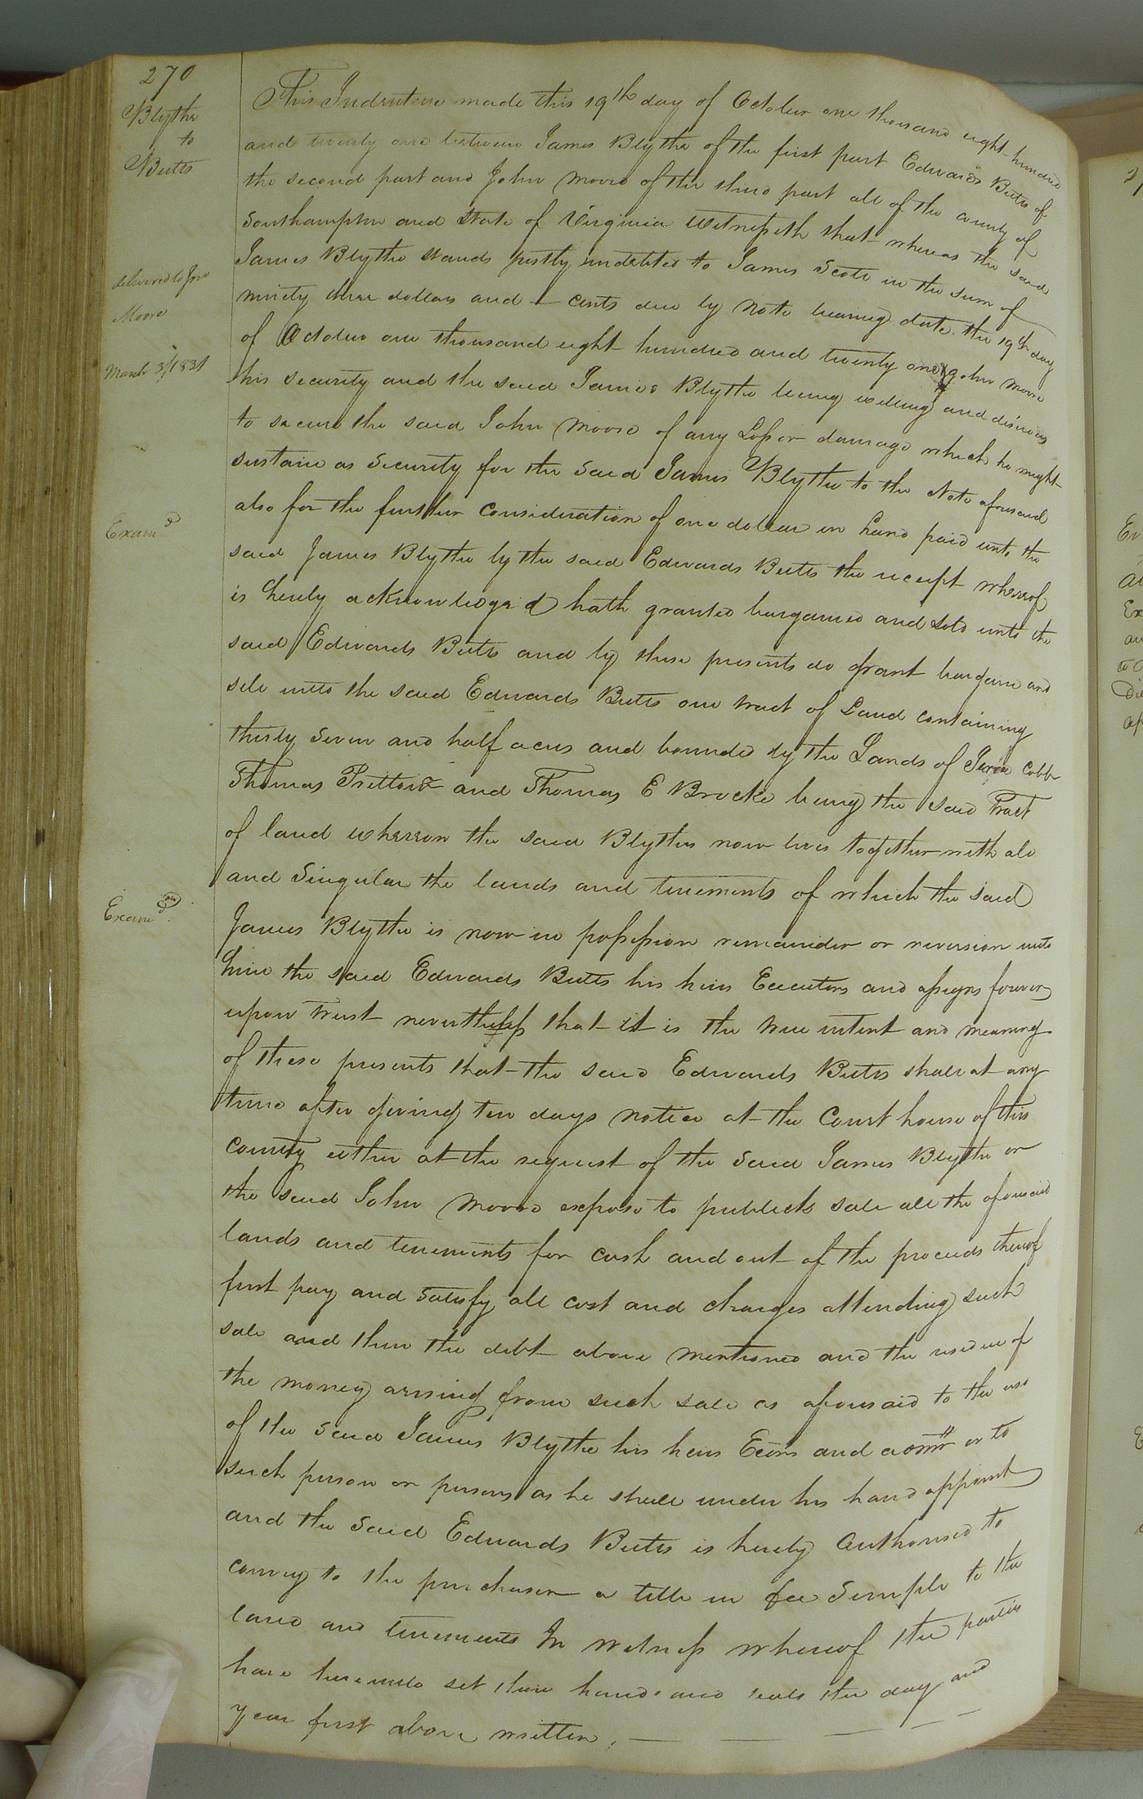 270
Blythe
to
Butts
delivered to Jno
Moore
March 3d 1831
Examd
Examd
This Indenture made this 19th day of October one thousand eight hundred
and twenty one between James Blythe of the first part Edwards Butts of
the second part and John Moore of the third part all of the county of
Southampton and State of Virginia Witnesseth that whereas the said
James Blythe stands justly indebted to James Scott in the sum of
ninety three dollars and — cents due by note bearing date the 19th day
of October one thousand eight hundred and twenty one John Moore
his security and the said James Blythe being willing and desirous
to secure the said John Moore of any Loss or damage which he might
sustain as Security for the said James Blythe to the Note aforesaid
also for the further consideration of one dollar in hand paid unto the
said James Blythe by the said Edwards Butts the receipt whereof
is hereby acknowledged hath granted bargained and sold unto the
said Edwards Butts and by these presents do grant bargain and
sell unto the said Edwards Butts one tract of Land containing
thirty seven and half acres and bounded by the Lands of Cobb
Thomas Pretlow and Thomas E Brocke being the said Tract
of land whereon the said Blythe now lives together with all
and singular the lands and tenements of which the said
James Blythe is now in possession remainder or reversion unto
him the said Edwards Butts his heirs Executors and assigns forever
upon trust nevertheless that it is the true intent and meaning
of these presents that the said Edwards Butts shall at any
time after giving ten days notice at the Court house of this
county either at the request of the said James Blythe or
the said John Moore expose to publick sale all the aforesaid
lands and tenements for cash and out of the proceeds thereof
first pay and satisfy all cost and charges attending such
sale and then the debt above mentioned and the residue of
the money arising from such sale as aforesaid to the use
of the said James Blythe his heirs Exors and admrs or to
such person or persons as he shall under his hand appoint
and the said Edwards Butts is hereby Authorised to
convey to the purchaser a title in fee simple to the
land and tenements In witness whereof the parties
have hereunto set their hands and seals the day and
year first above written. — — — — —